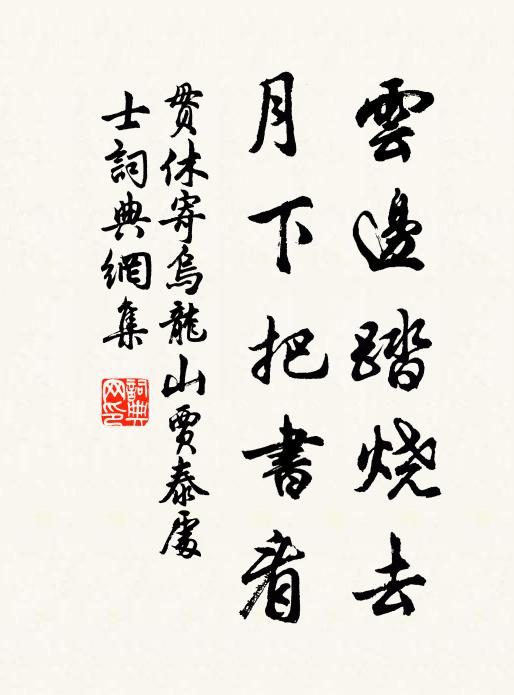 雲邊踏燒去
月下把書看
貫休寄烏龍山賈泰處
士詞典網集
詞典網印